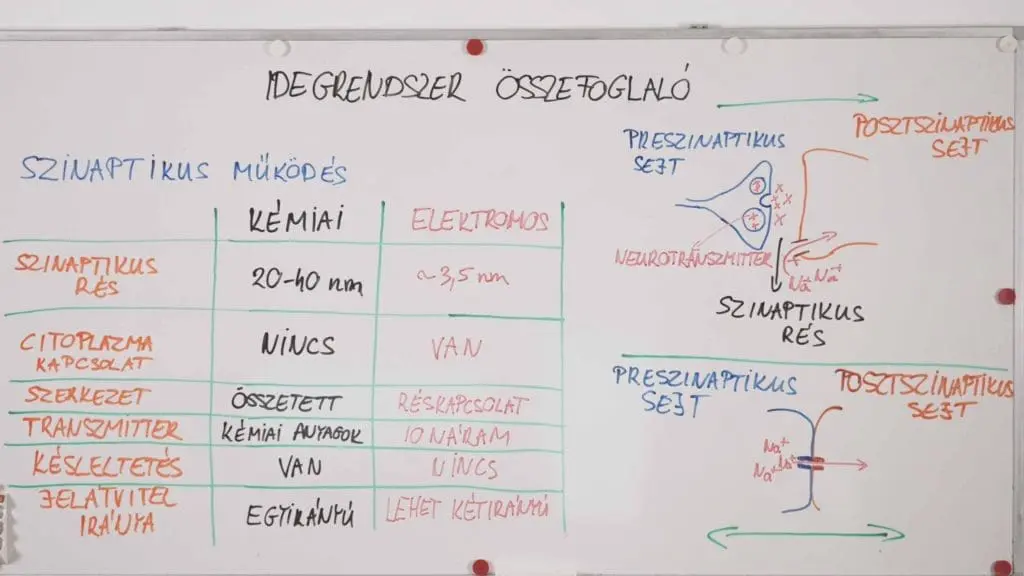 IDEGRENDSZER ÖSSZEFOGLALÓ
SZINAPTIKUS MŰKÖDÉS
KÉMIAI ELEKTROMOS
SZINAPTIKUS RÉS 20-40 nm ~3,5 nm
CITOPLAZMA KAPCSOLAT NINCS VAN
SZERKEZET ÖSSZETETT RÉSKAPCSOLAT
TRANSZMITTER KÉMIAI ANYAGOK IONÁRAM
KÉSLELTETÉS VAN NINCS
JELÁTVITEL IRÁNYA EGYIRÁNYÚ LEHET KÉTIRÁNYÚ
PRESZINAPTIKUS
SEJT
POSTSZINAPTIKUS
SEJT
NEUROTRANSZMITTER
Na+ Na+
SZINAPTIKUS
RÉS
PRESZINAPTIKUS
SEJT
POSTSZINAPTIKUS
SEJT
Na+
Na+ Na+